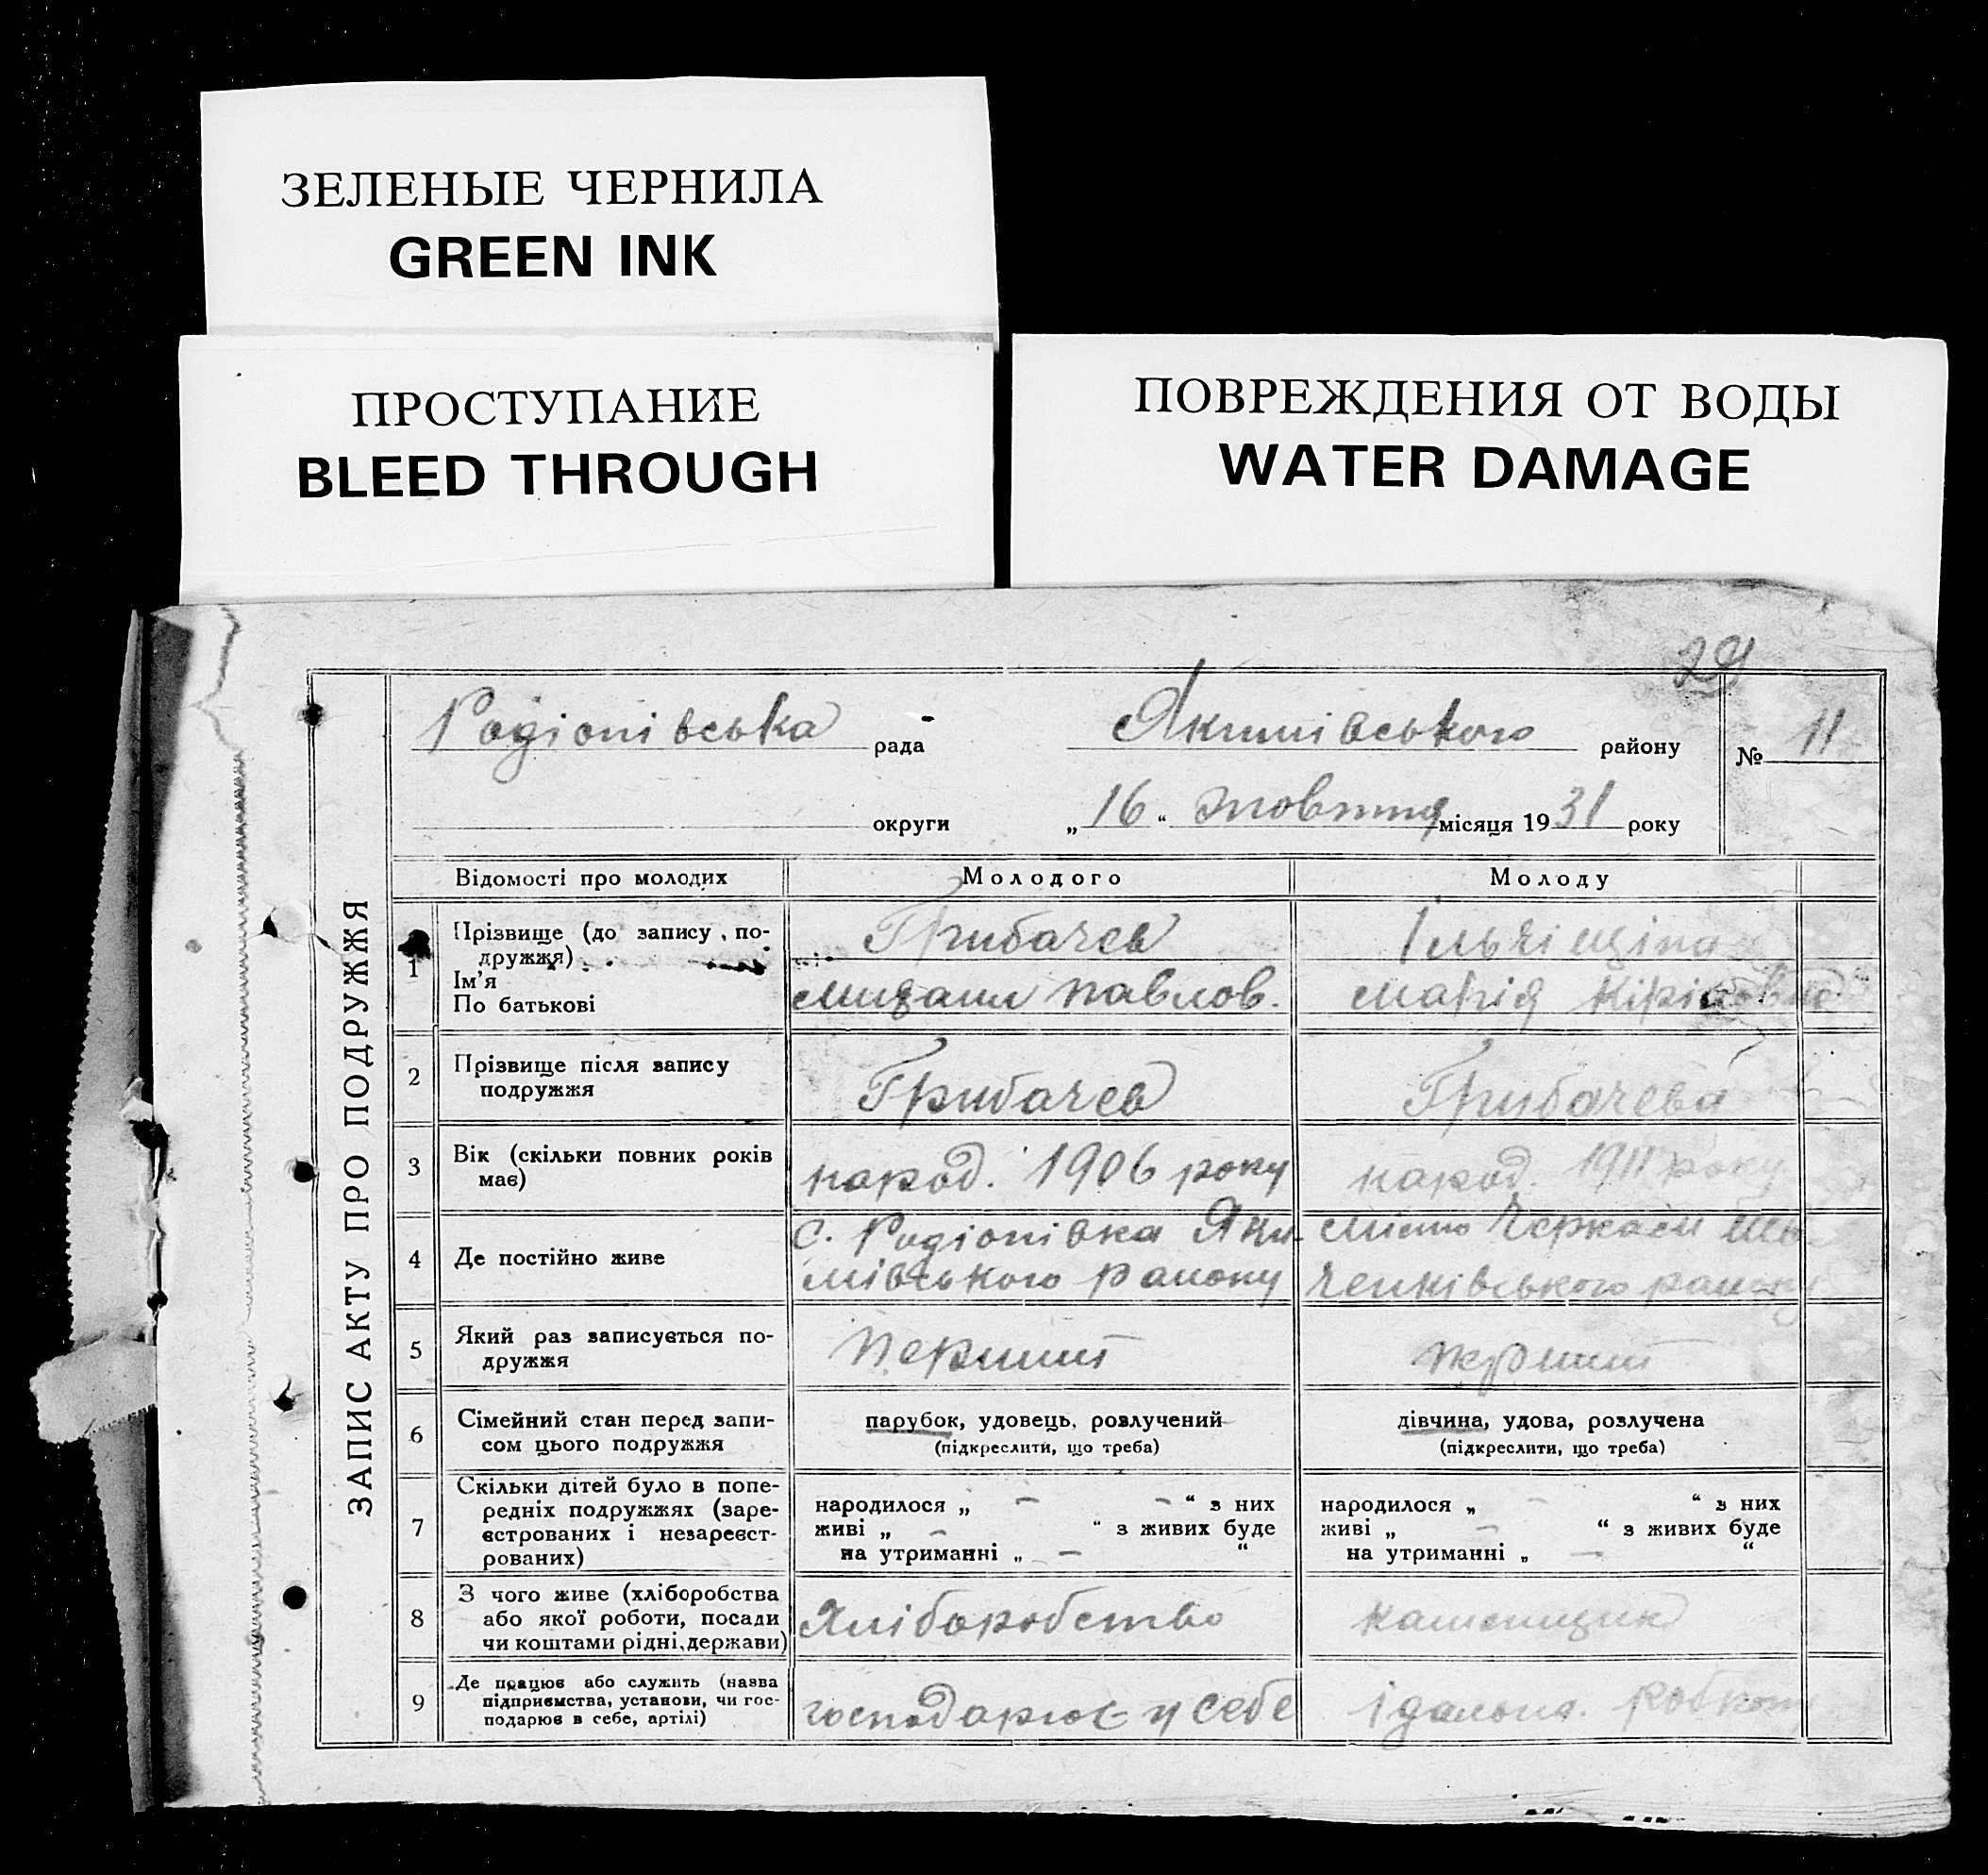 ЗЕЛЕНЫЕ ЧЕРНИЛА
GREEN INK
ПРОСТУПАНИЕ
BLEED THROUGH
ПОВРЕЖДЕНИЯ ОТ ВОДЫ
WATER DAMAGE
29
ЗАПИС АКТУ ПРО ПОДРУЖЖЯ
Родіонівська рада Якимівського району № 11
округи „16“ Жовтня місяця 1931 року
Відомості про молодих Молодого Молоду
1 Прізвище (до запису по-
дружжя)
Ім'я
По батькові
Грибачев
Михаил Павлов.
Марія
2 Прізвище після запису
подружжя
Грибачев
Грибачева
3 Вік (скільки повних років
має)
народ. 1906 року
народ. 1911 року
4 Де постійно живе
с. Родіонівка Яки-
мівського району
місто Черкаси
району
5 Який раз записується по-
дружжя
Перший
перший
6 Сімейний стан перед запи-
сом цього подружжя
парубок, удовець, розлучений
(підкреслити, що треба)
дівчина, удова, розлучена
(підкреслити, що треба)
7 Скільки дітей було в попе-
редніх подружжях (заре-
єстрованих і незареєст-
рованих)
народилося „ — — “ з них
живі „ — “ з живих буде
на утриманні „ — “
народилося „ — “ з них
живі „ — “ з живих буде
на утриманні „ — “
8 З чого живе (хліборобства
або якої роботи, посади
чи коштами рідні, держави)
Хліборобство
9 Де працює або служить (назва
підприємства, установи, чи гос-
подарює в себе, артілі)
господарює у себе
їдальня.